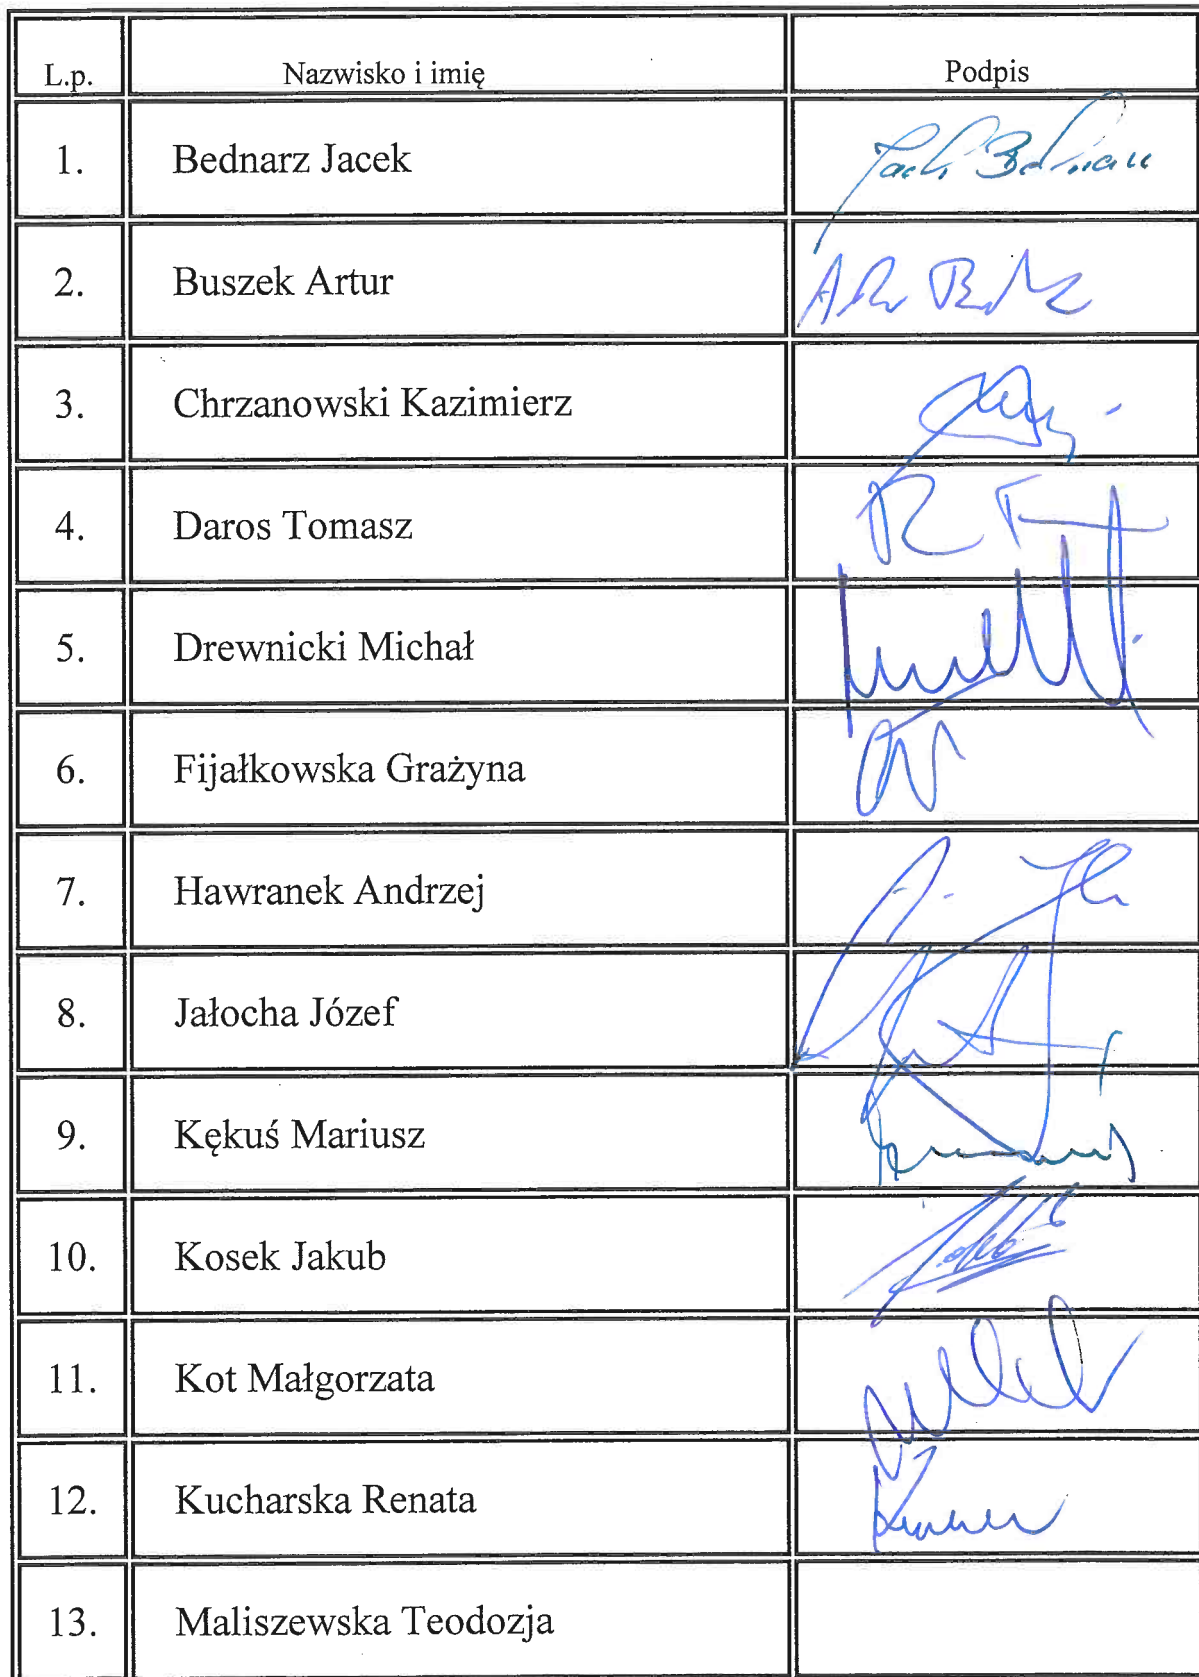 L.p. Nazwisko i imię Podpis
1. Bednarz Jacek Jacek Bednarz
2. Buszek Artur
3. Chrzanowski Kazimierz
4. Daros Tomasz
5. Drewnicki Michał
6. Fijałkowska Grażyna
7. Hawranek Andrzej
8. Jałocha Józef
9. Kękuś Mariusz
10. Kosek Jakub
11. Kot Małgorzata
12. Kucharska Renata
13. Maliszewska Teodozja